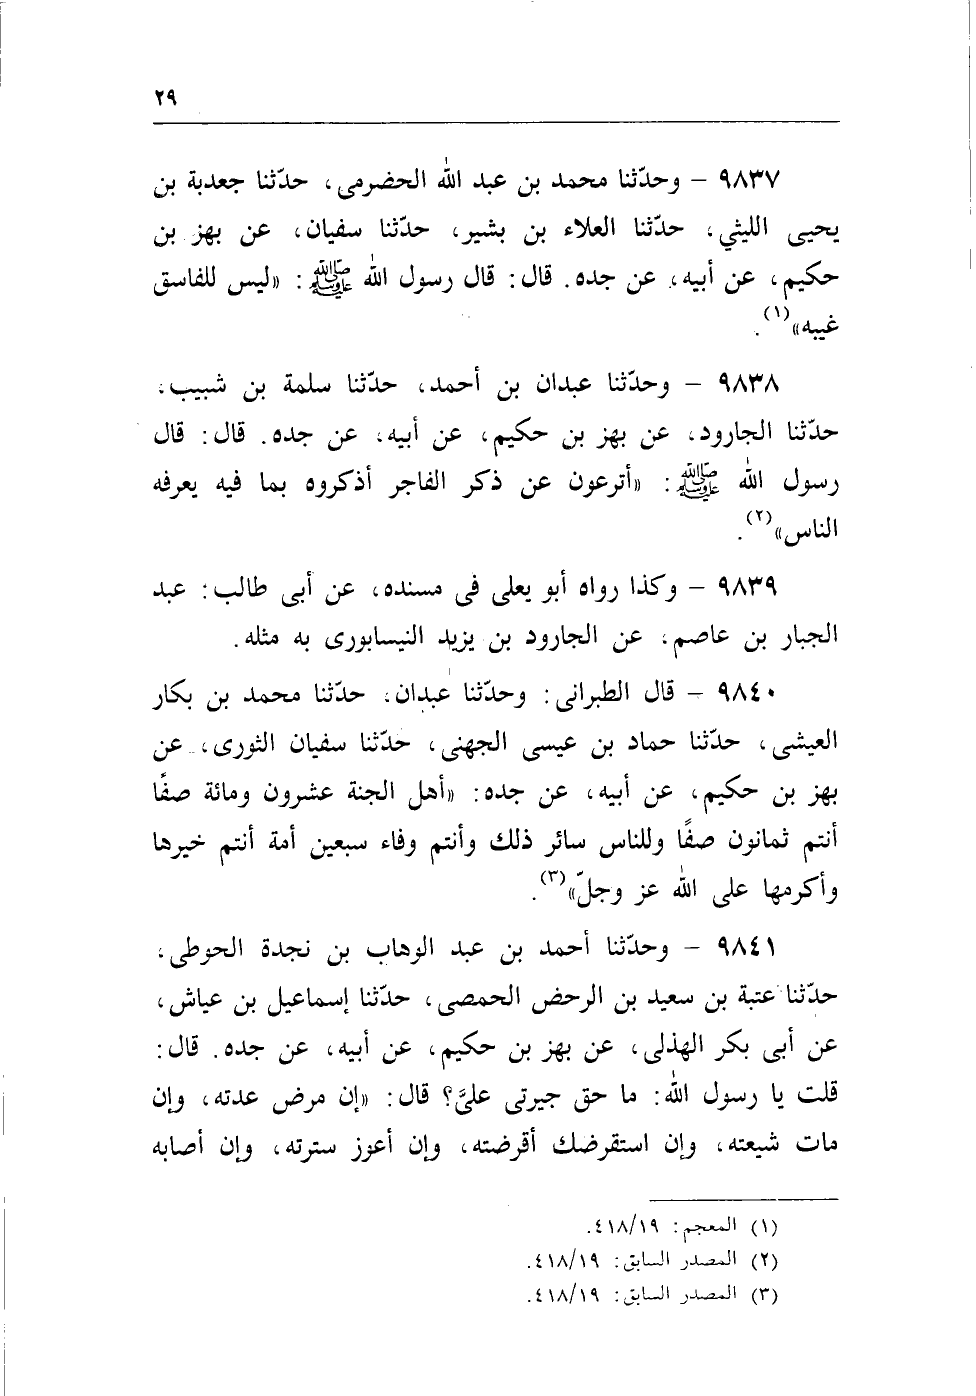 ٢٩
٩٨٣٧ – وحدّثنا محمد بن عبد الله الحضرمى، حدّثنا جعدبة بن
يحيى الليثي، حدّثنا العلاء بن بشير، حدّثنا سفيان، عن بهز بن
حكيم، عن أبيه، عن جده. قال: قال رسول الله ﷺ: «ليس للفاسق
غيبه»(١).
٩٨٣٨ – وحدّثنا عبدان بن أحمد، حدّثنا سلمة بن شبيب،
حدّثنا الجارود، عن بهز بن حكيم، عن أبيه، عن جده. قال: قال
رسول الله ﷺ: «أترعون عن ذكر الفاجر أذكروه بما فيه يعرفه
الناس»(٢).
٩٨٣٩ – وكذا رواه أبو يعلى فى مسنده، عن أبى طالب: عبد
الجبار بن عاصم، عن الجارود بن يزيد النيسابورى به مثله.
٩٨٤٠ – قال الطبرانى: وحدّثنا عبدان، حدّثنا محمد بن بكار
العيشى، حدّثنا حماد بن عيسى الجهنى، حدّثنا سفيان الثورى، عن
بهز بن حكيم، عن أبيه، عن جده: «أهل الجنة عشرون ومائة صفًا
أنتم ثمانون صفًا وللناس سائر ذلك وأنتم وفاء سبعين أمة أنتم خيرها
وأكرمها على الله عز وجلّ»(٣).
٩٨٤١ – وحدّثنا أحمد بن عبد الوهاب بن نجدة الحوطى،
حدّثنا عتبة بن سعيد بن الرحض الحمصى، حدّثنا إسماعيل بن عياش،
عن أبى بكر الهذلى، عن بهز بن حكيم، عن أبيه، عن جده. قال:
قلت يا رسول الله: ما حق جيرتى علىَّ؟ قال: «إن مرض عدته، وإن
مات شيعته، وإن استقرضك أقرضته، وإن أعوز سترته، وإن أصابه
(١) المعجم: ٤١٨/١٩.
(٢) المصدر السابق: ٤١٨/١٩.
(٣) المصدر السابق: ٤١٨/١٩.